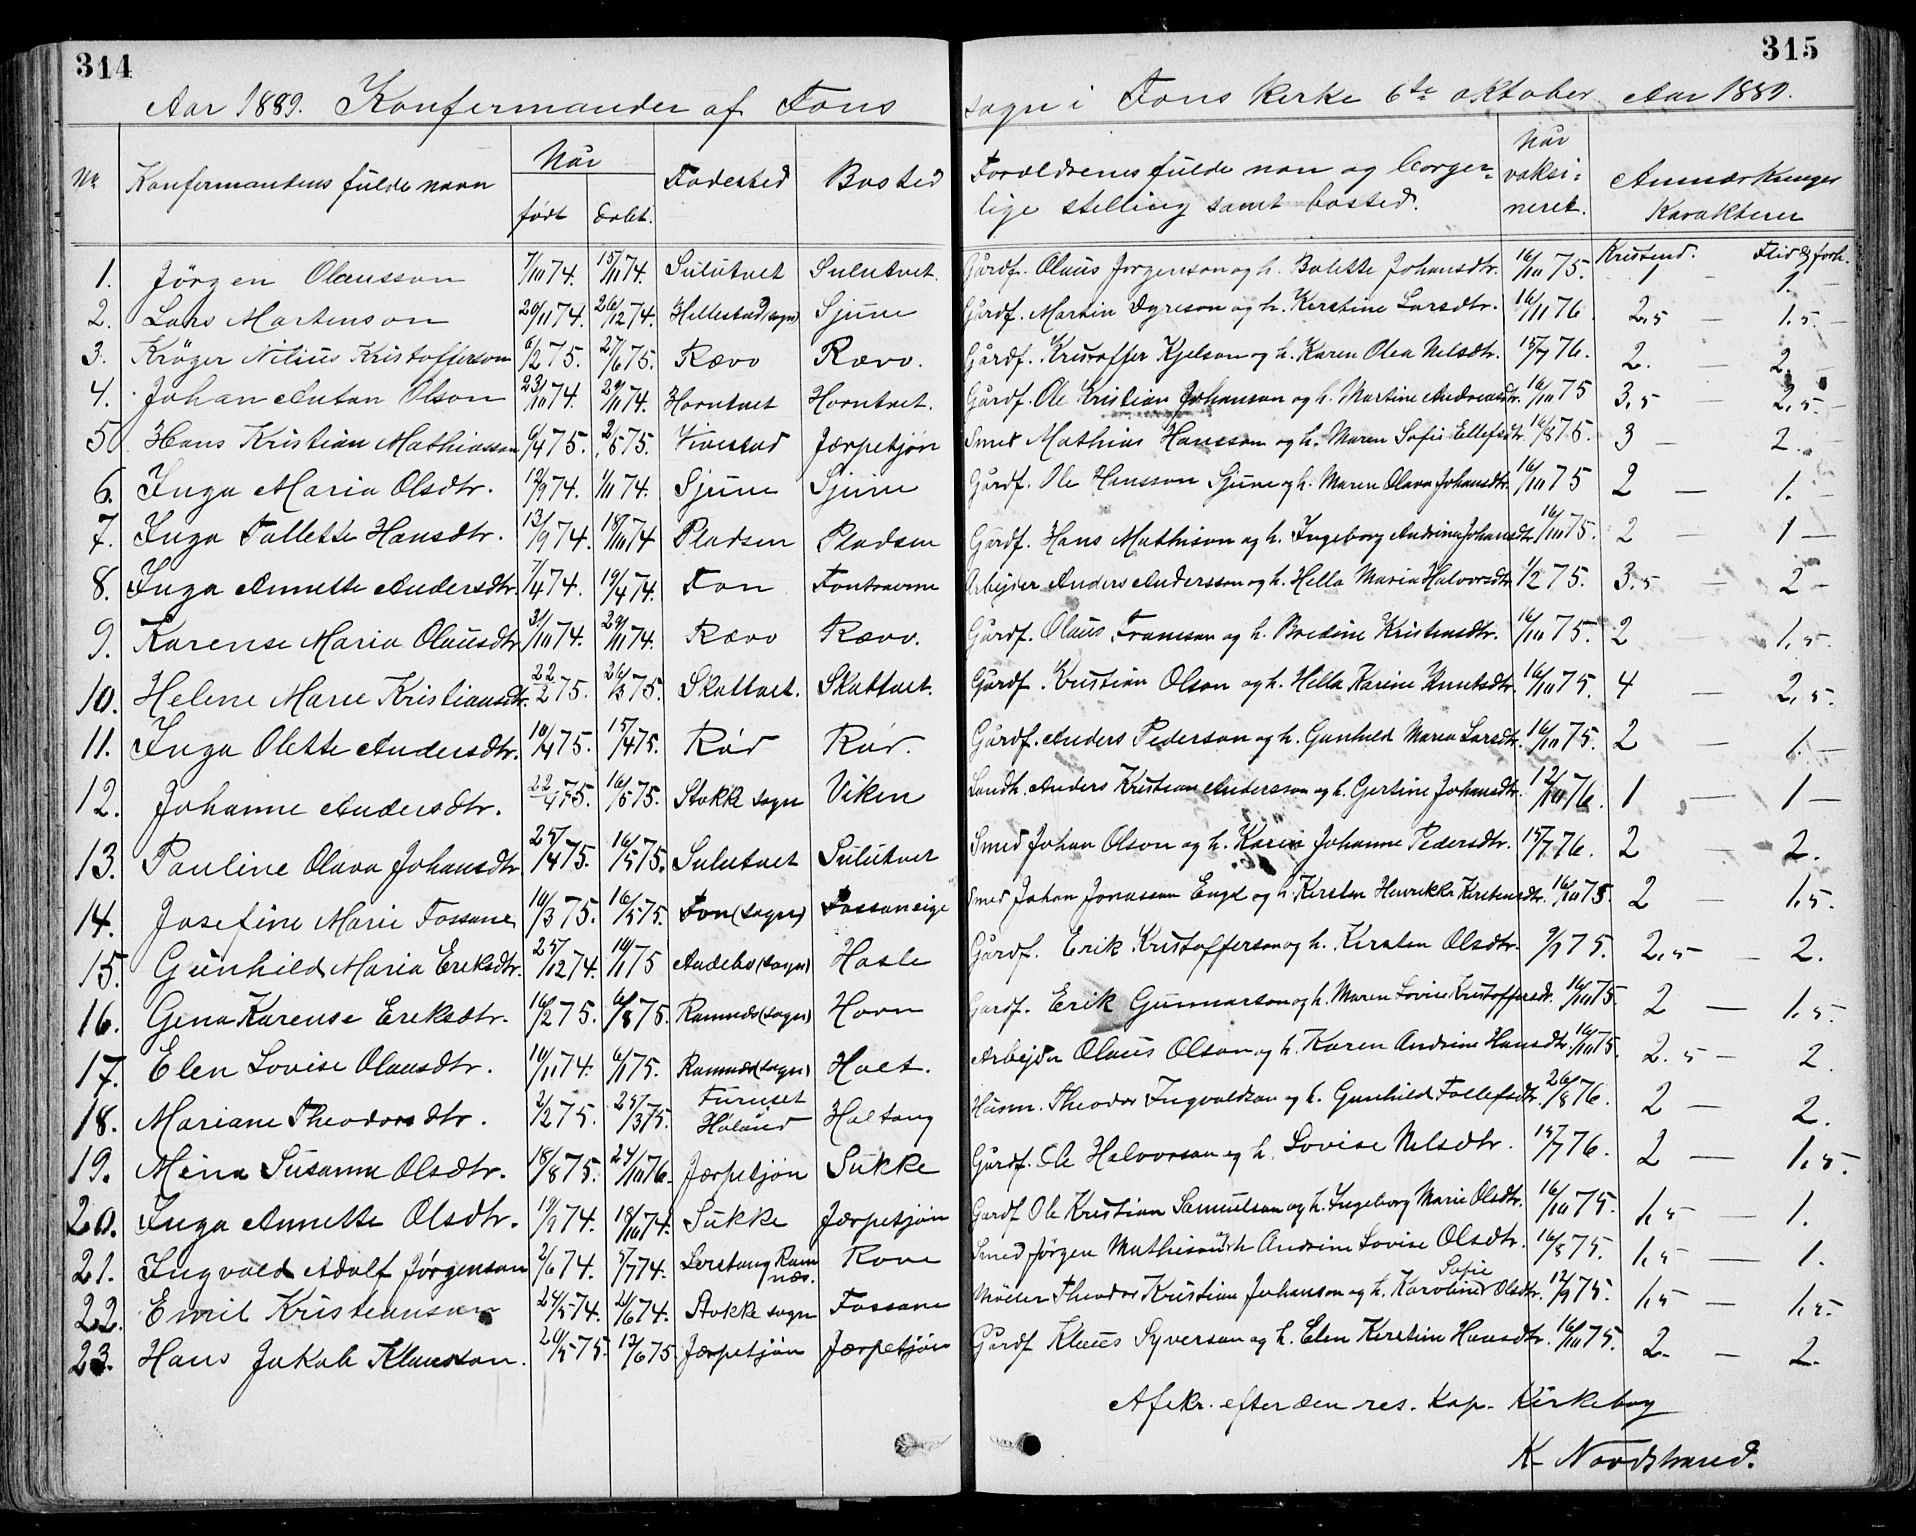 314
315
Aar 1889. Konfermander af Fons sogn i Fons Kerke 6te oktober Aar 1889.
No Konfermandens fulde navn Når født døbt. Fødested Bosted Foreldrenes fulde nan og borger= lige stelling samt bosted. Når vaksi= neret. Anmærkninger Karakterer
Kristend. Flid & forh.
1. Jörgen Olausson 7/10 74. 15/11 74. Sulutvet Sulutvet. Gårdf. Olaus Jorgenson og h. Bolette Johansdtr. 16/10 75. 1 – 1. –
2. Lars Martenson 20/11 74. 26/12 74. Hillestad (sogn) Sjune Gårdf. Martin Syreson og h. Kerstine Larsdtr. 16/11 76 2,5 – 1,5 –
3. Kröger Nilius Kristofferson 6/2 75. 27/6 75. Rævo Rævo. Gårdf. Kristoffer Kjelson og h. Karen Olea Nelsdtr. 15/7 76. 2. – 2. –
4. Johan Anton Olson 23/10 74 29/11 74. Horntvet Horntvet. Gårdf. Ole Kristian Johanson og h. Martine Andreasdtr. 16/10 75 3,5 – 2,5. –
5. Hans Kristian Mathiasson 6/4 75. 2/5 75. Vivestad Jærpetjön Smed Mathias Hansson og h. Maren Sofie Ellefsdtr. 16/8 75. 3 – 2. –
6. Inga Maria Olsdtr. 12/9 74. 1/11 74. Sjune Sjune Gårdf. Ole Hansson Sjune og h. Maren Olava Johansdtr. 16/10 75 2 – 1. –
7. Inga Tallette Hansdtr. 13/9 74. 18/10 74 Pladsen Pladsen Gårdf. Hans Mathison og h. Ingeborg Andrine Johansdtr. 16/10 75. 2 – 1 –
8. Inga Annette Andersdtr. 7/4 74. 19/4 74. Fon Arbejder Anders Andersson og h. Hella Maria Halvorsdtr. 1/2 75. 3,5 – 2 –
9. Karense Maria Olausdtr 31/10 74. 29/11 74. Rævo Rævo. Gårdf. Olaus Franson og h. Bredine Kristensdtr. 16/10 75. 2 1,5
10. Helene Marie Kristiansdtr. 22/2 75. 26/3 75. Skattvet. Skattvet. Gårdf. Kristian Olson og h. Hella Karine Knutsdtr. 16/10 75. 4 – 2,5.
11. Inga Olette Andersdtr. 10/4 75. 15/4 75. Rød Rød. Gårdf. Anders Pederson og h. Gunhild Maria Larsdtr. 16/10 75. 2 – 1. –
12. Johanne Andersdtr. 22/4 75. 16/5 75. Stokke sogn Viken Landh. Anders Kristian Andersson og h. Gertine Johansdtr. 12/10 76. 1 – 1 –
13. Pauline Olava Johansdtr 25/4 75. 16/5 75. Sulutvet Sulutvet Smed Johan Olson og h. Karin Johanne Pedersdtr. 15/7 76. 2 – 2.
14. Josefine Marie Fossane 10/3 75. 16/5 75. Fon (sogn) Fossaneige Smed Johan Jonassen Engel og h. Kersten Henrikke Kerstensdtr. 16/10 75. 2 – 1,5.
15. Gunhild Maria Eriksdtr. 25/12 74. 10/1 75 Andebo (sogn) Hasle Gårdf. Erik Kristofferson og h. Kersten Olsdtr. 9/9 75. 2,5 – 2.
16. Gena Karense Ereksdtr. 16/2 75. 6/8 75. Ramnes (sogn) Hovn Gardf. Erik Gunnarson og h. Maren Lovise Kristoffersdt. 16/10 75. 2 – 1,5.
17. Elen Lovise Olausdtr. 10/11 74. 6/1 75. Ramnes (sogn) Holt. Arbejder Olaus Olson og h. Karen Andrine Hansdtr. 16/10 75. 2.5 – 2.
18. Mariane Theodorsdtr. 2/2 75. 25/3 75. Furuset Høland Holtang Husm. Theodor Ingvaldson og h. Gunhild Tollefsdtr. 26/8 76. 2 – 2.
19. Mina Susanna Olsdtr. 18/8 75. 24/10 76. Jærpetjön Sukke Gårdf. Ole Halvorson og h. Lovise Nelsdtr. 15/7 76. 2 – 1,5.
20. Inga Annette Olsdtr. 19/9 74. 18/10 74. Sukke Jærpetjön Gardf Ole Kristian Samuelson og h. Ingeborg Marie Olsdtr. 16/10 75. 1,5 – 1.
21. Ingvald Adolf Jørgenson 2/6 74. 5/7 74. Lerstang Ramnæs. Rove Smed Jørgen Mathison og h Andrine Lovise Olsdtr. 16/8 75. 1,5 – 1.
22. Emil Kristianson 24/5 74. 21/6 74. Stokke sogn Fossane Møller Theodor Kristian Johanson og h. Karoline Sofie Olsdtr. 12/9 75. 1,5 – 1,5.
23. Hans Jakob Klausson. 20/5 75. 13/6 75 Jærpetjön Jærpetjön Gårdf Klaus Syverson og h. Elen Kerstine Hansdtr. 16/10 75. 2. – 2.
Afskr. efter den res. Kap. Kirkebog
K. Nordstrand.